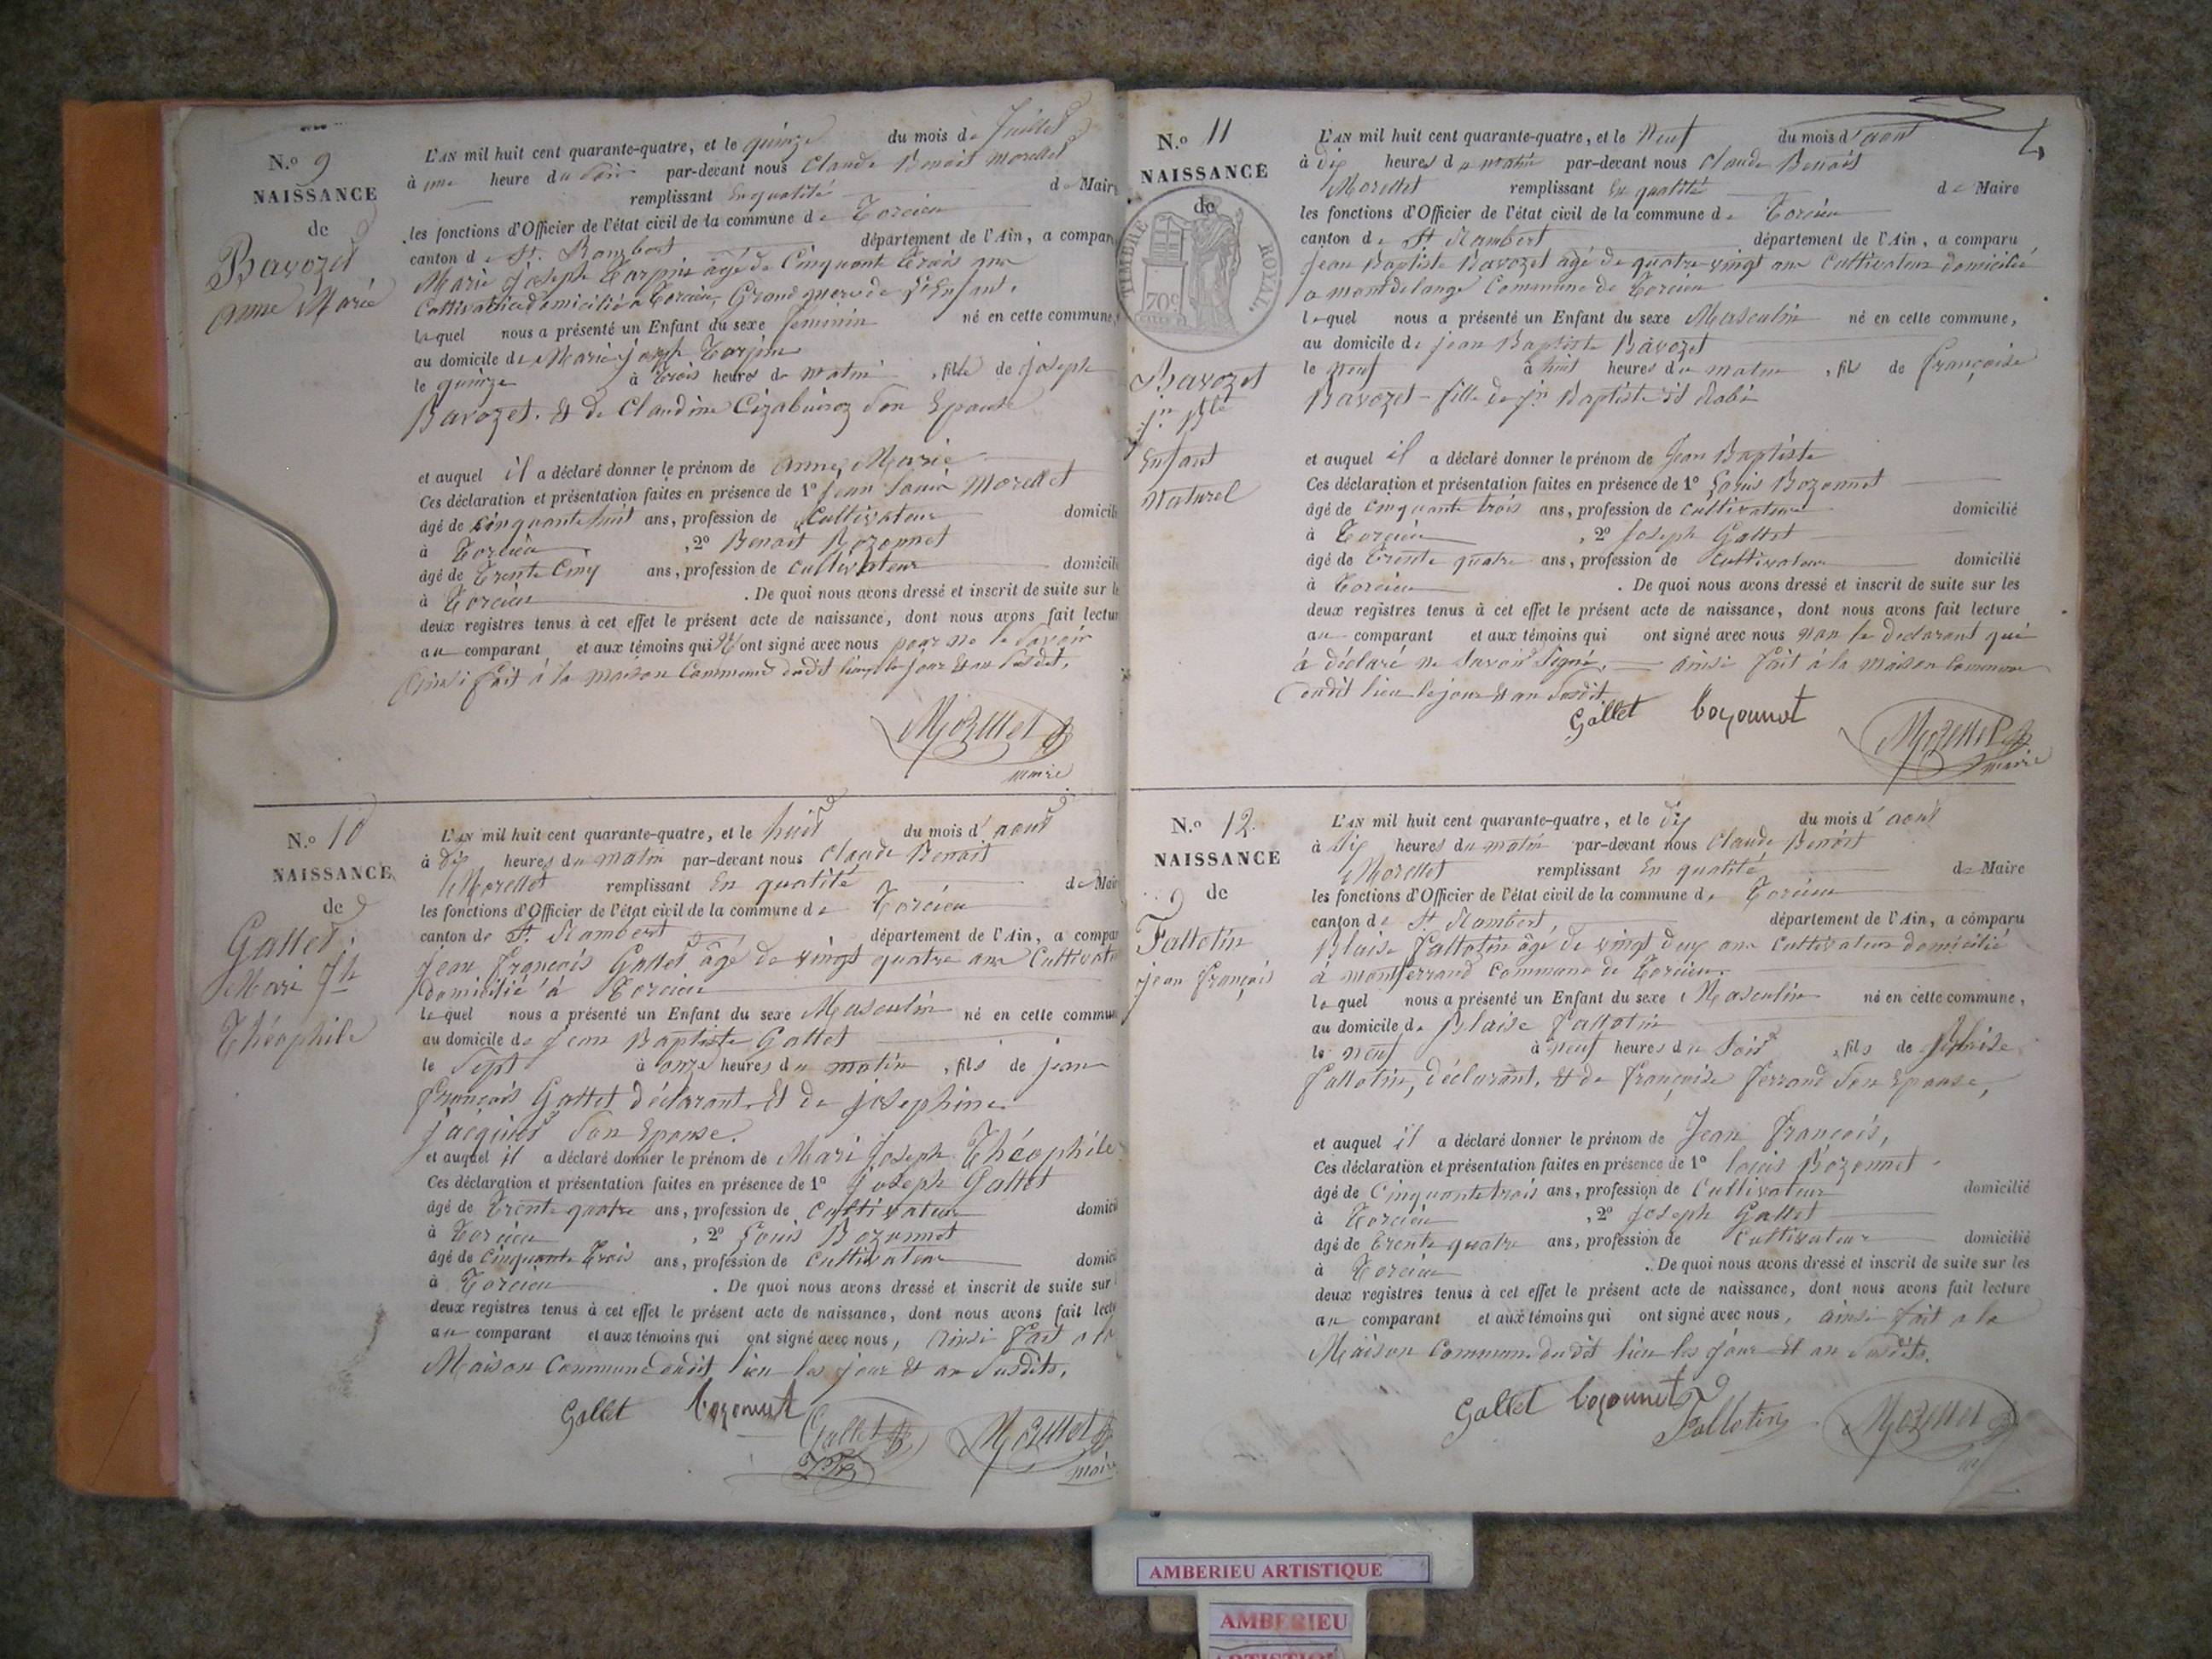 N.o 9
NAISSANCE
de
Bavozet
anne Marie
L'AN mil huit cent quarante-quatre, et le quinze du mois de Juillet
à une heure du Soir par-devant nous Claude Benoit Morellet
remplissant En qualité de Maire
les fonctions d'Officier de l'état civil de la commune de Torcieu
canton de St. Rambert département de l'Ain, a compar
Marie Joseph Torpin âgé de Cinquante trois ans
Cultivatrice domicilié à Torcieu, Grand mere de l'Enfant,
lequel nous a présenté un Enfant du sexe feminin né en cette commune,
au domicile de Marie joseph Torpin
le quinze à trois heures du matin, fille de joseph
Bavozet. Et de Claudine Son Epouse
et auquel il a déclaré donner le prénom de anne Marie
Ces déclaration et présentation faites en présence de 1° Jean Louis Morellet
âgé de cinquante huit ans, profession de Cultivateur domicili
à Torcieu, 2° Benoit Bozonnet
âgé de Trente Cinq ans, profession de cultivateur domicili
à Torcieu. De quoi nous avons dressé et inscrit de suite sur le
deux registres tenus à cet effet le présent acte de naissance, dont nous avons fait lectur
au comparant et aux témoins qui N'ont signé avec nous pour ne le Savoir
ainsi fait à la maison Commune dudit lieu le jour Et an Susdit,
Morellet
maire
N.o 10
NAISSANCE
de
Gallet,
Mari Jh
Théophile
L'AN mil huit cent quarante-quatre, et le huit du mois d'aout
à dix heures du matin par-devant nous Claude Benoit
Morellet remplissant En qualité de Mair
les fonctions d'Officier de l'état civil de la commune de Torcieu
canton de St. Rambert département de l'Ain, a compar
Jean François Gallet âgé de vingt quatre ans Cultivate
domicilié à Torcieu
lequel nous a présenté un Enfant du sexe Masculin né en cette commun
au domicile de Jean Baptiste Gallet
le Sept à onze heures du matin, fils de jean
François Gallet déclarant Et de josephine
jacquier Son Epouse.
et auquel il a déclaré donner le prénom de Mari Joseph Théophile
Ces déclaration et présentation faites en présence de 1° Joseph Gallet
âgé de Trente quatre ans, profession de cultivateur domicil
à Torcieu, 2° Louis Bozonnet
âgé de Cinquante Trois ans, profession de cultivateur domici
à Torcieu. De quoi nous avons dressé et inscrit de suite sur
deux registres tenus à cet effet le présent acte de naissance, dont nous avons fait lectu
au comparant et aux témoins qui ont signé avec nous, ainsi fait a la
Maison Commune dudit lieu les jour Et an Susdits,
Gallet bozonnet Gallet Morellet
maire
N.o 11
NAISSANCE
de
TIMBRE ROYAL.
70c
Bavozet
jn Bte
Enfant
Naturel
L'AN mil huit cent quarante-quatre, et le Neuf du mois d'aout
à dix heures du matin par-devant nous Claude Benoit
Morellet remplissant En qualité de Maire
les fonctions d'Officier de l'état civil de la commune de Torcieu
canton de St Rambert département de l'Ain, a comparu
Jean Baptiste Bavozet agé de quatre vingt ans Cultivateur domicilié
a montdelange Commune de Torcieu
lequel nous a présenté un Enfant du sexe Masculin né en cette commune,
au domicile de jean Baptiste Bavozet
le Neuf à huit heures du matin, fils de françoise
Bavozet - fille de jn Baptiste
et auquel il a déclaré donner le prénom de Jean Baptiste
Ces déclaration et présentation faites en présence de 1° Louis Bozonnet
âgé de Cinquante trois ans, profession de cultivateur domicilié
à Torcieu, 2° Joseph Gallet
âgé de trente quatre ans, profession de Cultivateur domicilié
à Torcieu. De quoi nous avons dressé et inscrit de suite sur les
deux registres tenus à cet effet le présent acte de naissance, dont nous avons fait lecture
au comparant et aux témoins qui ont signé avec nous non le declarant qui
à déclaré ne Savoir Signé, ainsi fait à la maison Commune
dudit lieu le jour Et an Susdit,
Gallet bozonnet Morellet
maire
N.o 12
NAISSANCE
de
Fallotin
jean françois
L'AN mil huit cent quarante-quatre, et le dix du mois d'aout
à dix heures du matin par-devant nous Claude Benoit
Morellet remplissant En qualité de Maire
les fonctions d'Officier de l'état civil de la commune de Torcieu
canton de St. Rambert, département de l'Ain, a comparu
Blaise Fallotin âgé de vingt deux ans cultivateur domicilié
à montferrand Commune de Torcieu.
lequel nous a présenté un Enfant du sexe Masculin né en cette commune,
au domicile de Blaise Fallotin
le neuf à neuf heures du Soir, fils de Blaise
Fallotin, déclarant, Et de françoise ferrand Son Epouse,
et auquel il a déclaré donner le prénom de Jean François,
Ces déclaration et présentation faites en présence de 1° louis Bozonnet
âgé de Cinquante trois ans, profession de Cultivateur domicilié
à Torcieu, 2° Joseph Gallet
âgé de trente quatre ans, profession de Cultivateur domicilié
à Torcieu. De quoi nous avons dressé et inscrit de suite sur les
deux registres tenus à cet effet le présent acte de naissance, dont nous avons fait lecture
au comparant et aux témoins qui ont signé avec nous, ainsi fait a la
Maison Commune dudit lieu les jour Et an Susdits.
Gallet bozonnet Fallotin Morellet
AMBERIEU ARTISTIQUE
AMBERIEU
ARTISTIQUE